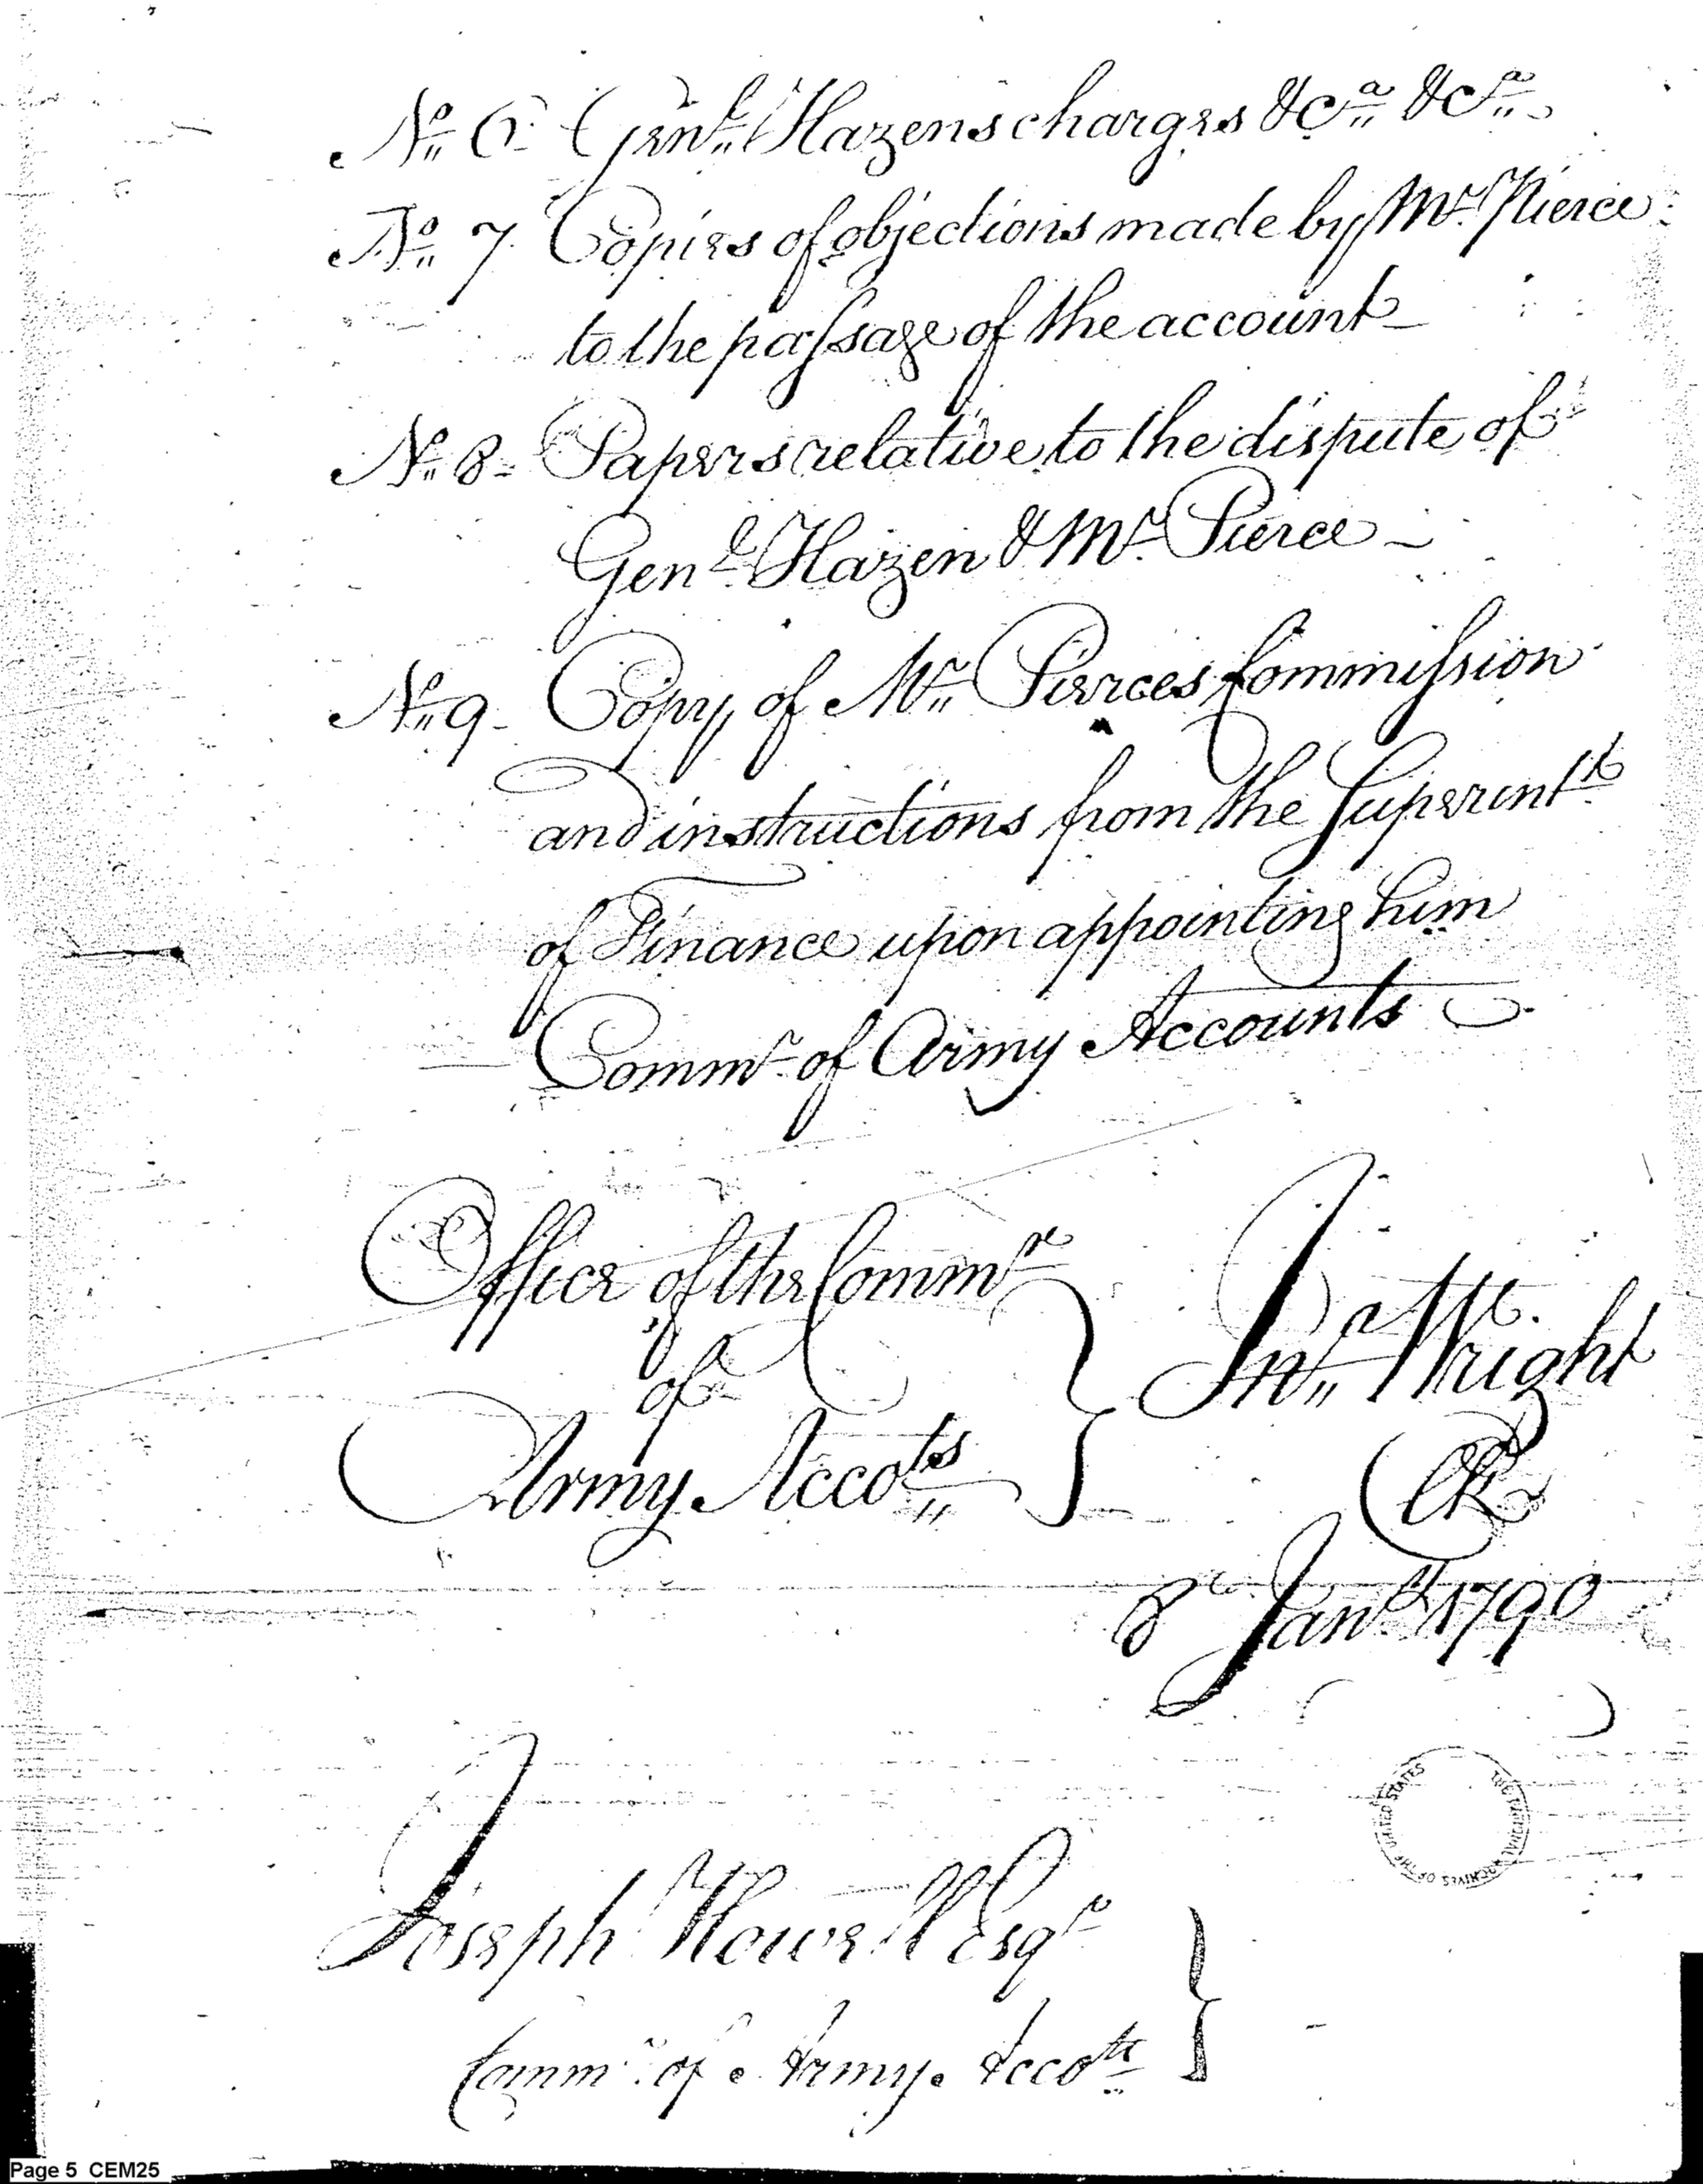 No. 6. Genl. Hazens charges &ca. &ca.
No. 7 Copies of objections made by Mr. Pierce
to the passage of the account
No. 8 - Papers relative to the dispute of
Genl. Hazen & Mr. Pierce -
No. 9 - Copy of Mr. Pierces Commission
and instructions from the Superintt.
of Finance upon appointing him
Commr. of Army Accounts
Office of the Commr.
of
Army Accots.
Jno. Wright
Clk
8 Jany. 1790
THE NATIONAL ARCHIVES OF THE UNITED STATES
Joseph Howell Esqr.
Commr. of Army Accots.
Page 5 CEM25